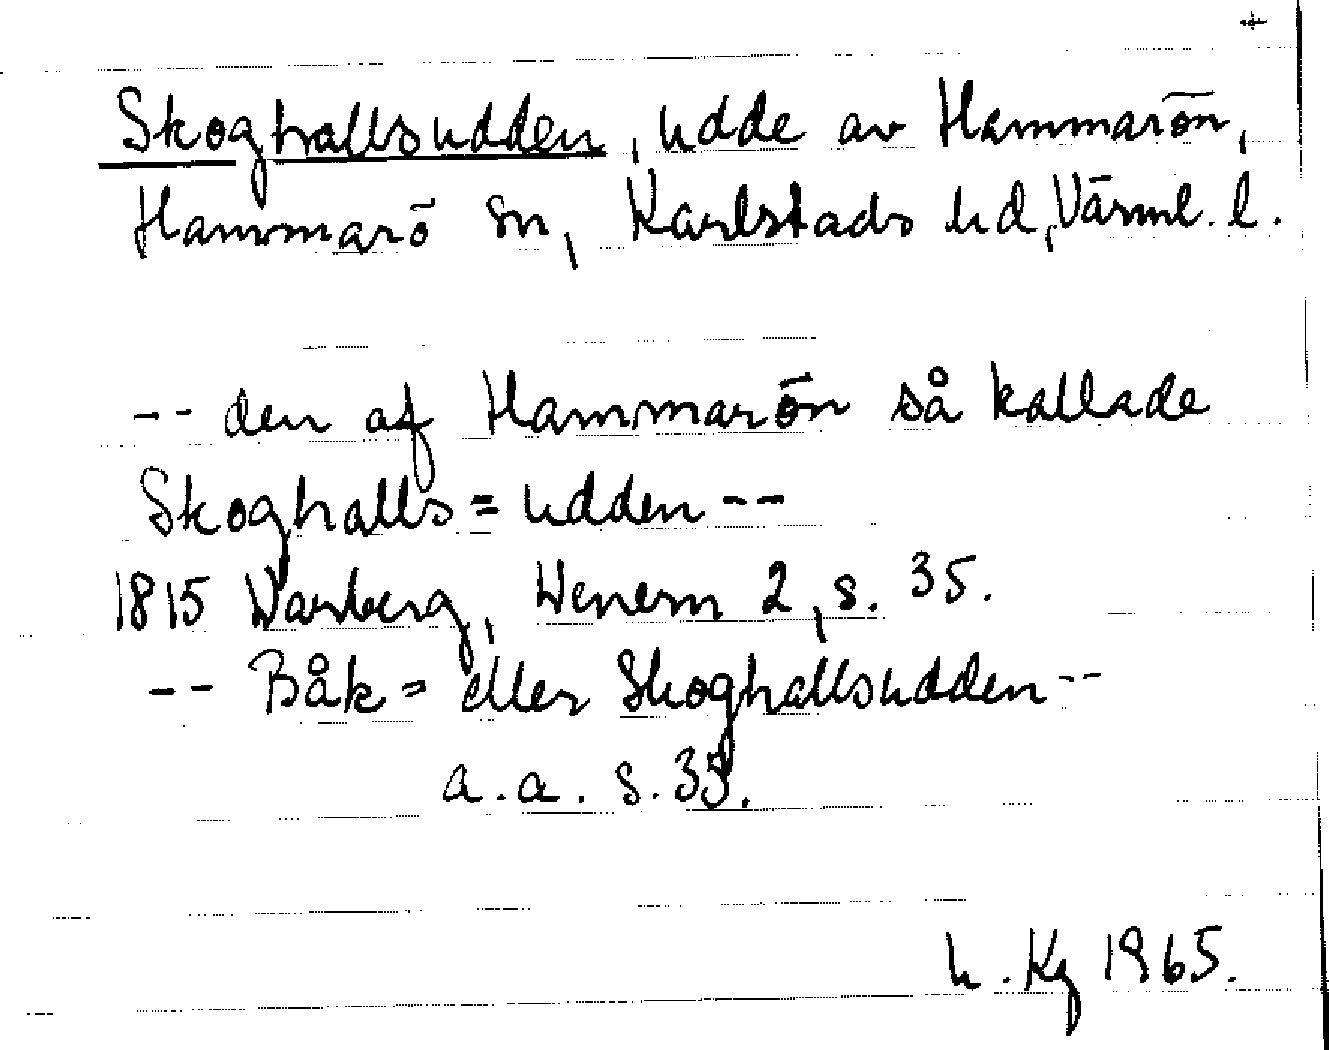 +
Skoghallsudden, udde av Hammarön,
Hammarö sn, Karlstads hd, Värml. l.
-- den af Hammarön så kallade
Skoghalls=udden --
1815 Warberg, Wenern 2, s. 35.
-- Båk= eller Skoghallsudden --
a.a. s. 35.
h. Kg 1965.